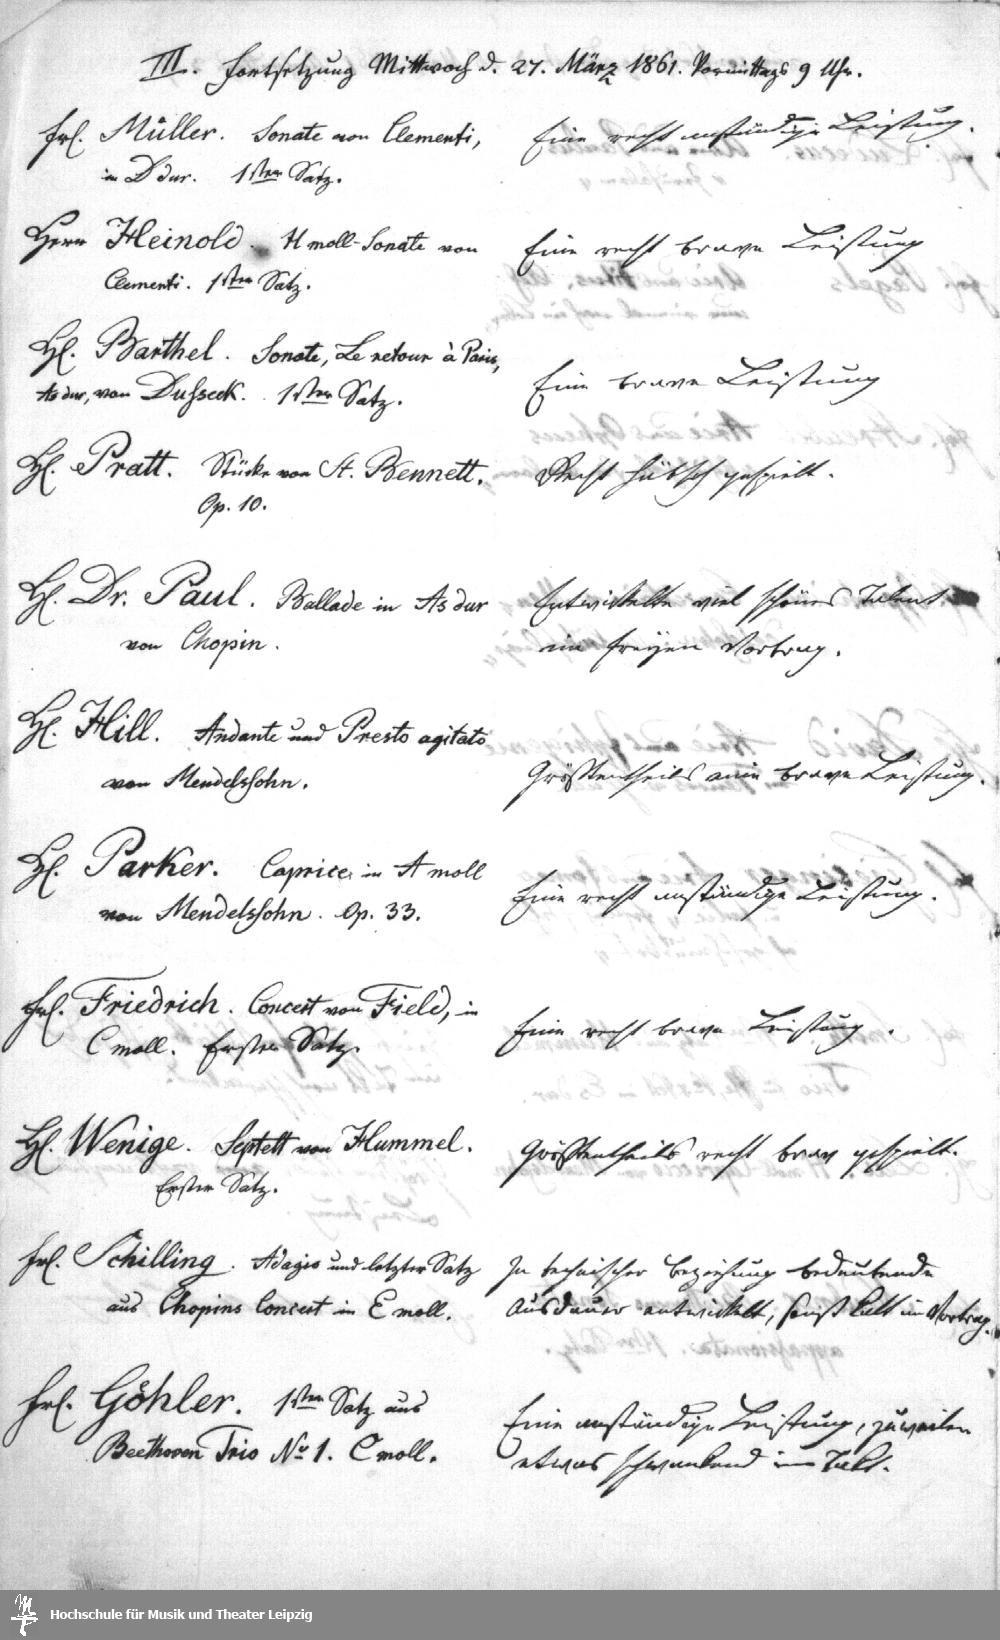 III. Fortsetzung Mittwoch d. 27. März 1861. Vormittags 9 Uhr.
Frl. Müller. Sonate von Clementi,
in D dur. 1ster Satz.
Eine recht anständige Leistung.
Herr Heinold. H moll-Sonate von
Clementi. 1ster Satz.
Eine recht brave Leistung
H. Barthel. Sonate, Le retour à Paris,
As dur, von Dusseck. 1ster Satz.
Eine brave Leistung
H. Pratt. Stücke von St. Bennett.
Op. 10.
Recht hübsch gespielt.
H. Dr. Paul. Ballade in As dur
von Chopin.
Entwickelte viel schönes Talent
im freyen Vortrag.
H. Hill. Andante und Presto agitato
von Mendelssohn.
Größtentheils eine brave Leistung.
H. Parker. Caprice in A moll
von Mendelssohn. Op. 33.
Eine recht anständige Leistung.
Frl. Friedrich. Concert von Field, in
C moll. Erster Satz.
Eine recht brave Leistung.
H. Wenige. Septett von Hummel.
Erster Satz.
Größtentheils recht brav gespielt.
Frl. Schilling. Adagio und letzter Satz
aus Chopins Concert in E moll.
In technischer Beziehung bedeutende
Ausdauer entwickelt, sonst kalt im Vortrag.
Frl. Göhler. 1ster Satz aus
Beethoven Trio No 1. C moll.
Eine anständige Leistung, zuweilen
etwas schwankend im Takt.
Hochschule für Musik und Theater Leipzig